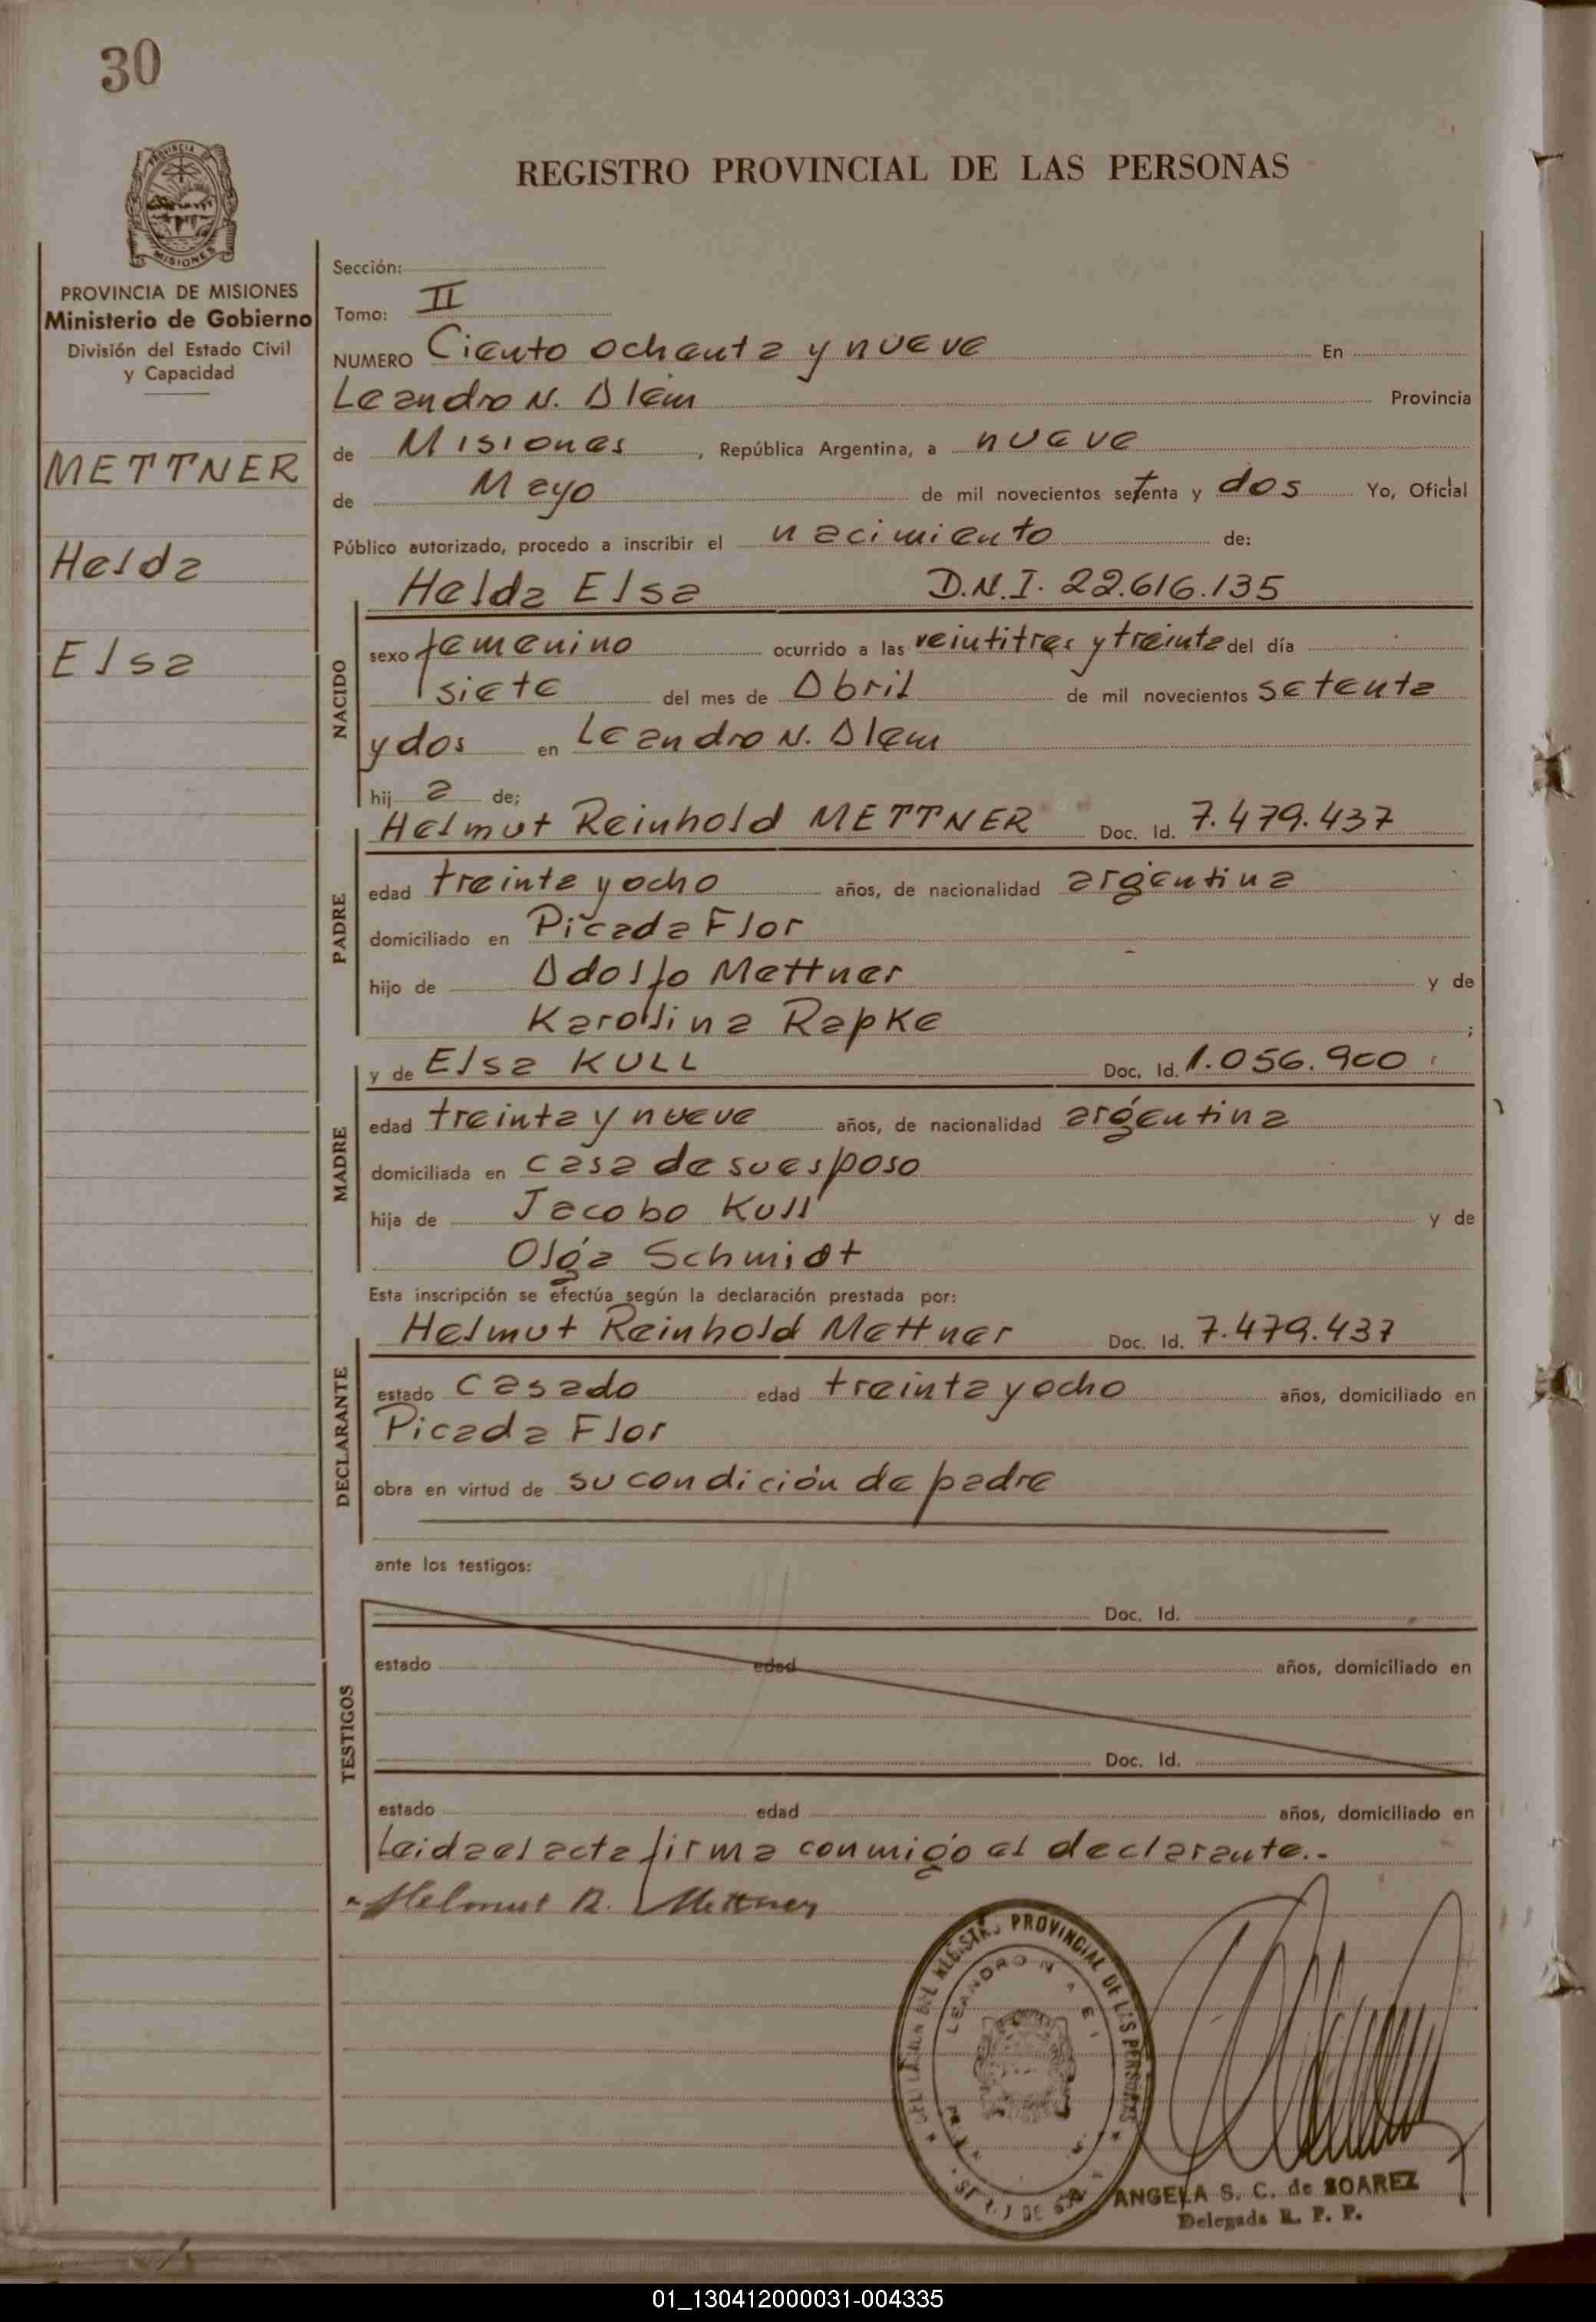 30
PROVINCIA DE
MISIONES
REGISTRO PROVINCIAL DE LAS PERSONAS
PROVINCIA DE MISIONES
Ministerio de Gobierno
División del Estado Civil
y Capacidad
METTNER
Helda
Elsa
Sección:
Tomo: II
NUMERO Ciento ochenta y nueve En
Leandro N. Alem Provincia
de Misiones, República Argentina, a nueve
de Mayo de mil novecientos setenta y dos Yo, Oficial
Público autorizado, procedo a inscribir el nacimiento de:
Helda Elsa D.N.I. 22.616.135
NACIDO
sexo femenino ocurrido a las veintitres y treinta del día
siete del mes de Abril de mil novecientos setenta
y dos en Leandro N. Alem
hij a de;
Helmut Reinhold METTNER Doc. Id. 7.479.437
PADRE
edad treinta y ocho años, de nacionalidad argentina
domiciliado en Picada Flor
hijo de Adolfo Mettner y de
Karolina Rapke ;
y de Elsa KULL Doc. Id. 1.056.900
MADRE
edad treinta y nueve años, de nacionalidad argentina
domiciliada en casa de su esposo
hija de Jacobo Kull y de
Olga Schmidt
Esta inscripción se efectúa según la declaración prestada por:
Helmut Reinhold Mettner Doc. Id. 7.479.437
DECLARANTE
estado casado edad treinta y ocho años, domiciliado en
Picada Flor
obra en virtud de su condición de padre
ante los testigos:
TESTIGOS
Doc. Id.
estado edad años, domiciliado en
Doc. Id.
estado edad años, domiciliado en
Leida el acta firma conmigo el declarante.-
Helmut R. Mettner
REGISTRO PROVINCIAL DE LAS PERSONAS
LEANDRO N.
ANGELA S. C. de SOAREZ
Delegada R. P. P.
01_130412000031-004335